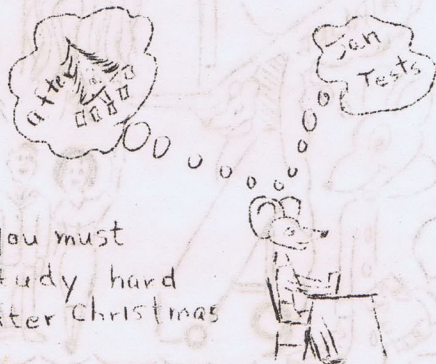 after
Jan
Tests
You must
study hard
after Christmas